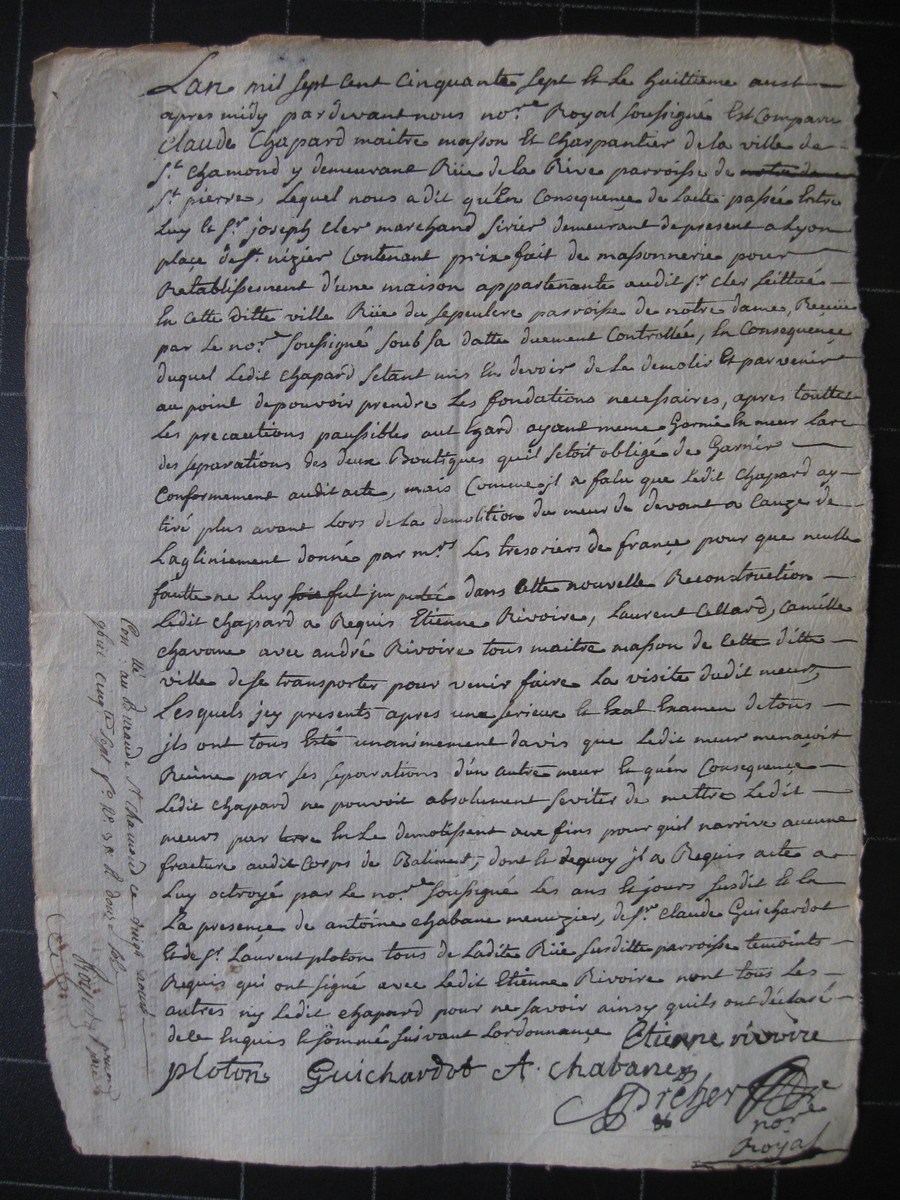 Lan mil sept cent cinquante sept Et Le huittieme aust
apres midy pardevant nous nore. Royal soussigné Est Comparu
claude Chapard maitre masson Et Charpantier de la ville de
st. chamond y demeurant Rüe de la Rive parroisse de notre de
st. pierre, Lequel nous a dit qu'En Consequençe de Lacte passée Entre
Luy Et sr. joseph cler marchand demeurant de present a Lyon
plaçe de st. nizier Contenant prix fait de massonnerie pour
Retablissement d'une maison appartenante audit sr. cler scittuée
En cette ditte ville Rüe du sepulcre parroisse de notre dame, Reçüe
par Le nore. soussigné soub sa datte duement Controllée, En Consequence
duquel Ledit chapard setant mis En devoir de La demolir Et parvenir
au point de pouvoir prendre Les fondations necessaires, apres touttes
Les precautions paussibles aut Egard ayant meme Garnie En meur Larc
des separations des deux Boutiques quil setoit obligé de Garnir
Conformement audit acte, mais Comme jl a falu que Ledit Chapard ay
tiré plus avant Lors de La demolition du meur de devant a Cauze de
Lagliniement donné par mrs. Les tresoriers de france pour que nculle
faute ne Luy fut jmputé dans Cette nouvelle Reconstruction
Ledit chapard a Requis Etienne Rivoire, Laurent Cellard, Camille
chavane avec andré Rivoire tous maitre masson de Cette ditte
ville de se transporter pour venir faire La visite dudit meur,
Lesquels jcy presents apres une serieux Et Exat Examen de tous
jls ont tous Esté unanimement davis que Ledit meur menaçoit
Ruine par ses separations d'un autre meur Et quen Consequençe
Ledit Chapard ne pouvoit absolument seviter de mettre Ledit
meurs par terre En Le demolissent aux fins pour quil narrive aucune
fracture audit Corps de Batiment, dont Et dequoy jl a Requis acte a
Luy octroyé par Le nore. soussigné Les ans Et jours susdit Et En
La presence de antoine Chabane menuzier, de sr. Claude Guichardot
Et de sr. Laurent ploton tous de Ladite Rüe susditte parroisse temoints
Requis qui ont signé avec Ledit Etienne Rivoire nont tous Les
autres ny Ledit chapard pour ne savoir ainsy quils ont déclaré
de ce Enquis Et sommé suivant Lordonnançe Etienne rivoire
ploton Guichardot A. chabane
nore
Royal
Conllé au Bureau de St Chamond ce quinze aoust